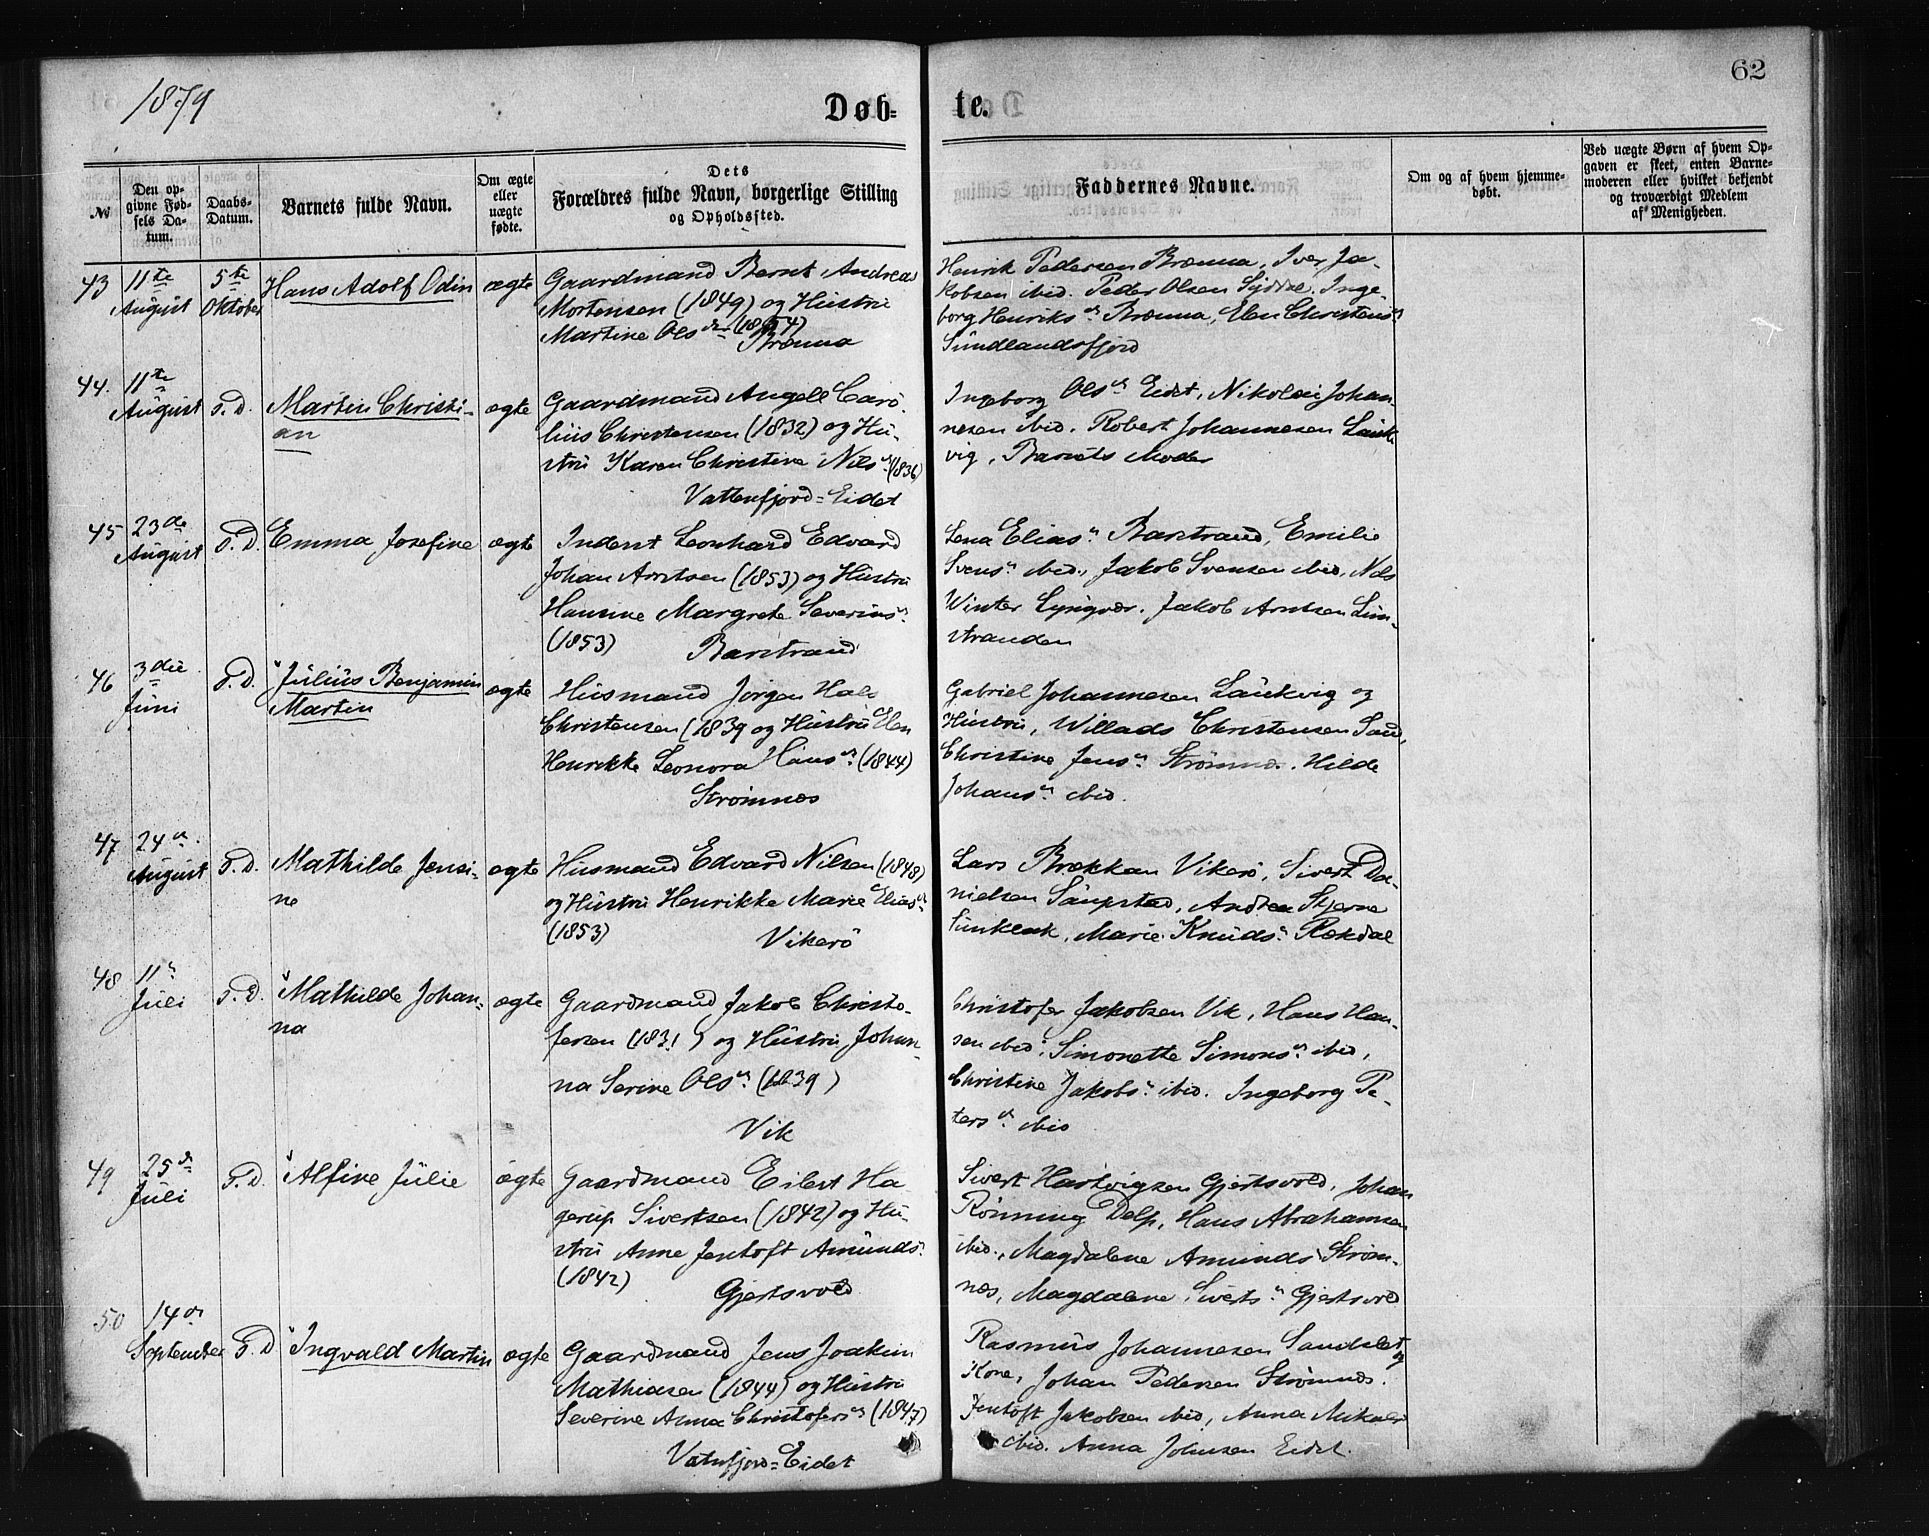 1879
Døb-
te.
62
№
Den op-
givne Fød-
sels Da-
tum.
Daabs-
Datum.
Barnets fulde Navn.
Om ægte
eller
uægte
fødte.
Dets
Forældres fulde Navn, borgerlige Stilling
og Opholdssted.
Faddernes Navne.
Om og af hvem hjemme-
døbt.
Ved uægte Børn af hvem Op-
gaven er skeet, enten Barne-
moderen eller hvilket bekjendt
og troværdigt Medlem
af Menigheden.
43
11te
August
5te
Oktober
Hans Adolf Odin
ægte
Gaardmand Bernt Andreas
Mortensen (1849) og Hustru
Martine Olsdr (1854)
Brenna
Henrik Pedersen Brenna, Iver Ja-
kobsen ibid. Peder Olsen Inge-
borg Henriksdr Brenna, Elen Christensdr
Sundlandsfjord
44.
11te
August
T.D.
Martin Christi-
an
ægte
Gaardmand Angell Caro-
lius Christensen (1832) og Hu-
stru Karen Christine Nilsdr (1836)
Vatterfjord=Eidet
Ingeborg Olsdr Eidet, Nikolai Johan-
nesen ibid. Robert Johannesen Lauk-
vig, Barnets Moder
45
23de
August
T.D.
Emma Josefine
ægte
Inderst Leonhard Edvard
Johan Arntsen (1853) og Hustru
Hansine Margrete Severinsdr
(1853)
Barstrand
Lena Eliasdr Barstrand, Emilie
Svensdr ibid., Jakob Svensen ibid, Nils
Winter Lyngvær. Jakob Arntsen Lim-
stranden
46
3die
Juni
T.D.
"Julius Benjamin
Martin
ægte
Husmand Jørgen Hals
Christensen (1839 og Hustru Elen
Henrikke Leonora Hansdr (1844)
Strømnes
Gabriel Johannesen Laukvig og
Hustru, Willads Christensen Sand,
Christine Jensdr Strømnes. Hilde
Johansdr ibid.
47
24de
August
T.D.
Mathilde Jensi-
ne
ægte
Husmand Edvard Nilsen (1848)
og Hustru Henrikke Marie Eliasdr
(1853)
Vikerø
Lars Brækkan Vikerø, Sivert Da-
nielsen Saupstad, Andrea
Marie Knudsdr Rekdal
48
11te
Juli
T.D.
"Mathilde Johan-
na
ægte
Gaardmand Jakob Christo-
fersen (1831) og Hustru Johan-
na Serine Olsdr (1839)
Vik
Christofer Jakobsen Vik, Hans Han-
sen ibid, Simonette Simonsdr ibid,
Christine Jakobsdr ibid. Ingeborg Pe-
tersdr ibid
49
25de
Juli
T.D.
"Alfine Julie
ægte
Gaardmand Eilert Ha-
gerup Sivertsen (1842) og Hu-
stru Anne Jentoft Amundsdr
(1842)
Gjertsvold
Sivert Hartvigsen Gjertsvold, Johan
Rønning Delp, Hans Abrahamsen
ibid., Magdalene Amundsdr Strøm-
nes, Magdalene Sivertsdr Gjertsvold
50
14de
September
T.D
"Ingvald Martin
ægte
Gaardmand Jens Joakim
Mathiasen (1844) og Hustru
Severine Anna Christofersdr (1847)
Vaterfjord=Eidet
Rasmus Johannesen Sandslet og
Kone, Johan Pedersen Strømnes.
Jentoft Jakobsen ibid, Anna
ibid. Anna Johnsen Eidet.